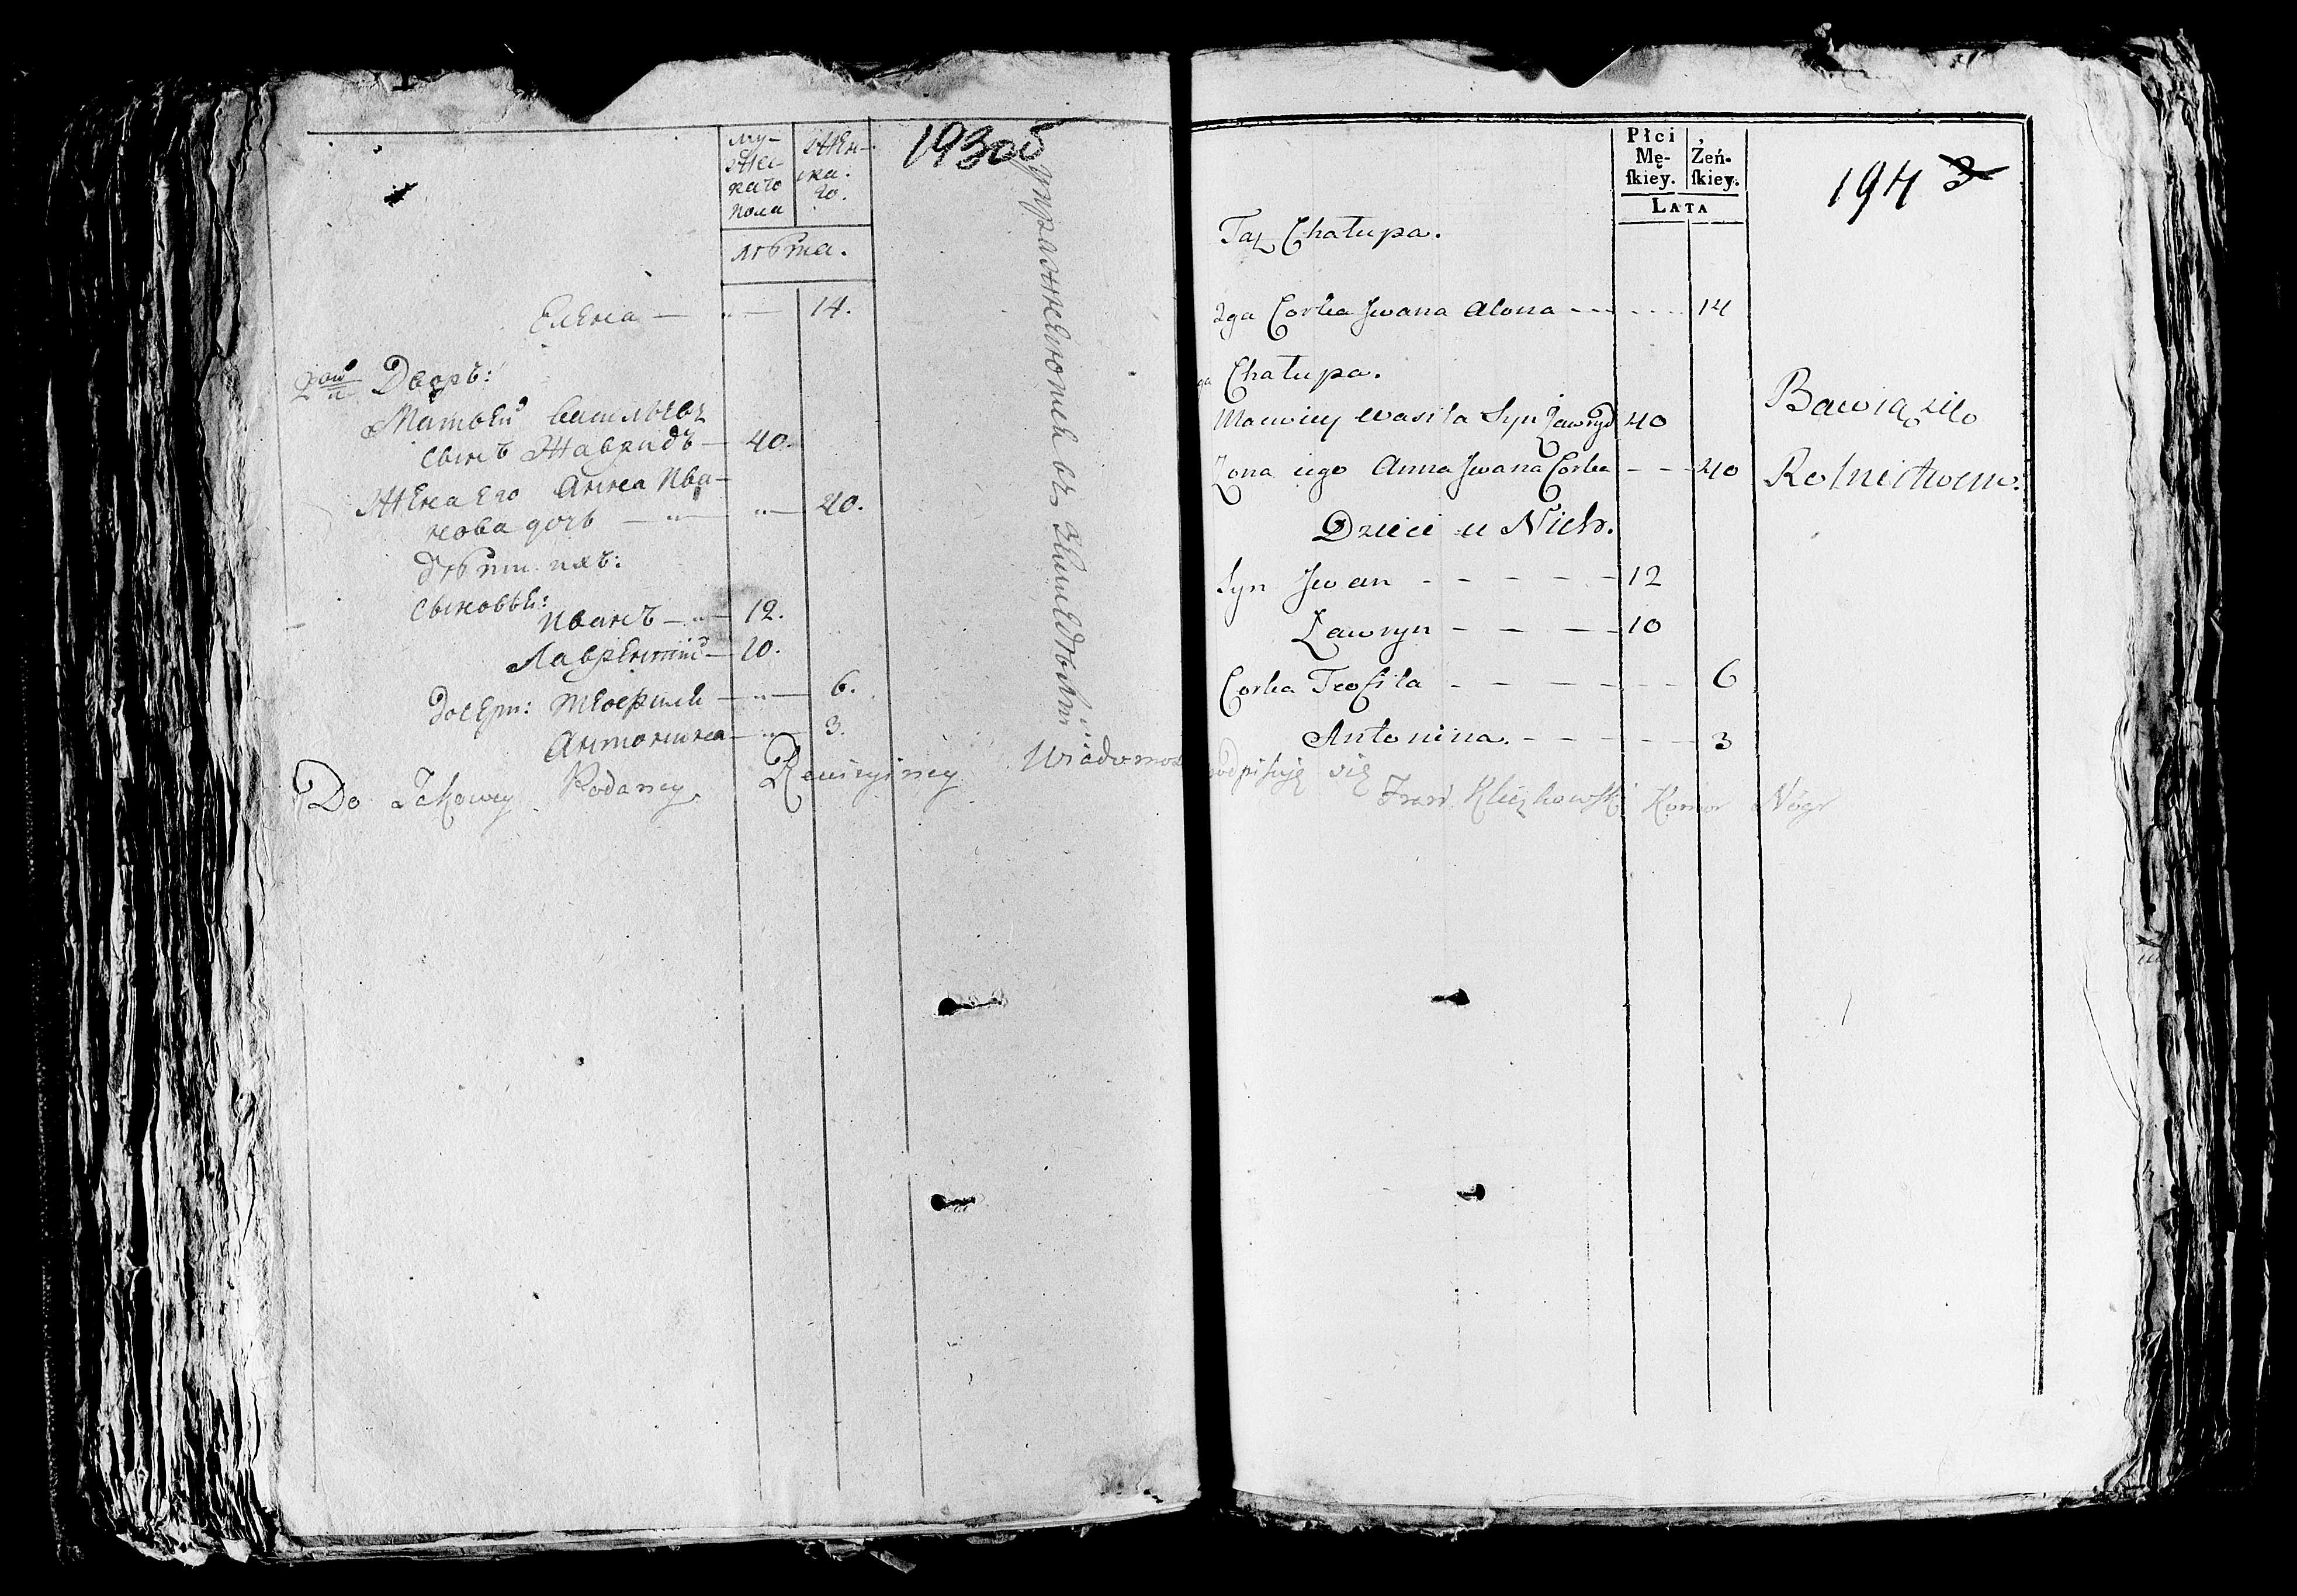 му-
жес-
каго
пола
жен-
ска.
го.
193об
лѣта.
Елена — 14.
2ой Дворъ:
Матвей Васильевъ
сынъ Жавридъ — 40.
Жена его Анна Ива-
нова дочь — 40.
дѣти ихъ:
сыновьи:
Иванъ — 12.
Лаврентий — 10.
дочери: Теофиля — 6.
Антонина — 3.
упражняются въ земледѣлии
Do Takowey Podaney Rewizyiney Wiadomos podpisuję się
Fran Kleczkowski Komor Nogr
Płci
Mę-
ſkiey.
Żeń-
ſkiey.
LATA
194
Taz Chałupa.
2ga Corka Jwana Alona - - - 14
ga Chałupa.
Macwiey Wasila Syn Zawryd 40
Zona iego Anna Jwana Corka - - 40
Dzieci u Nich.
Syn Jwan - - - - - 12
Ławryn - - - - 10
Corka Teofila - - - - - 6
Antonina. - - - - - 3
Bawią się
Rolnictwem: